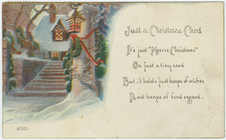 Just a Christmas Card
It's just "Merrie Christmas"
On just a tiny card
But it holds just heaps of wishes
And heaps of kind regard.